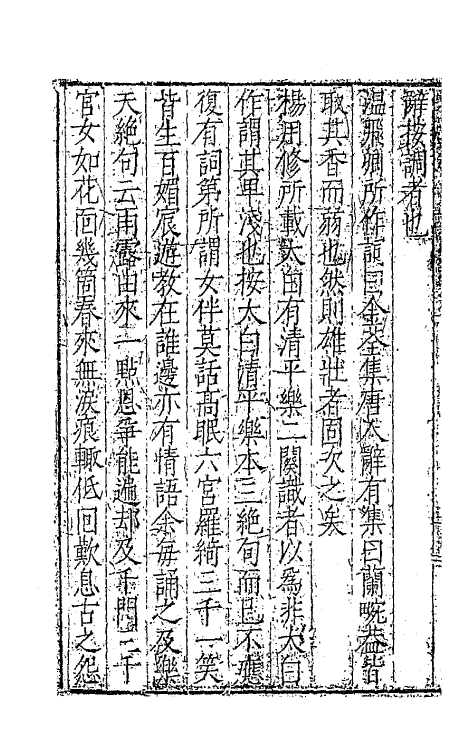 辭按調者也
温飛卿所作詞曰金荃集唐人辭有集曰蘭畹葢皆
取其香而弱也然則雄壯者固次之矣
楊用修所載太白有清平樂二闋識者以為非太白
作謂其卑淺也按太白清平樂本三絶句而已不應
復有詞第所謂女伴莫話高眠六宮羅綺三千一笑
皆生百媚宸遊教在誰邊亦有情語余每誦之及樂
天絶句云雨露由來一點恩争能遍却及千門三千
官女如花面幾箇春來無淚痕輒低回歎息古之怨